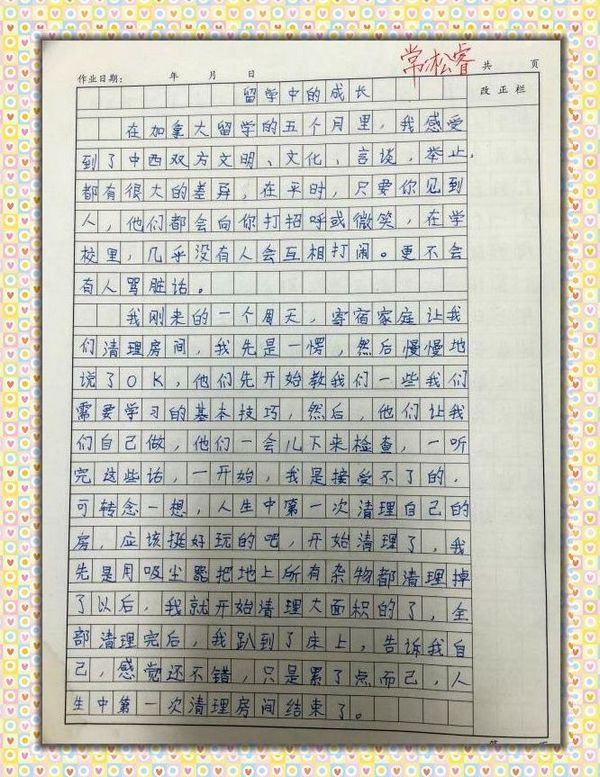 常松睿
作业日期： 年 月 日 共 页
留学中的成长 改正栏
在加拿大留学的五个月里，我感受
到了中西双方文明、文化、言谈，举止，
都有很大的差异，在平时，只要你见到
人，他们都会向你打招呼或微笑，在学
校里，几乎没有人会互相打闹。更不会
有人骂脏话。
我刚来的一个周天，寄宿家庭让我
们清理房间，我先是一愣，然后慢慢地
说了OK，他们先开始教我们一些我们
需要学习的基本技巧，然后，他们让我
们自己做，他们一会儿下来检查，一听
完这些话，一开始，我是接受不了的，
可转念一想，人生中第一次清理自己的
房，应该挺好玩的吧，开始清理了，我
先是用吸尘器把地上所有杂物都清理掉
了以后，我就开始清理大面积的了，全
部清理完后，我趴到了床上，告诉我自
己，感觉还不错，只是累了点而已，人
生中第一次清理房间结束了。